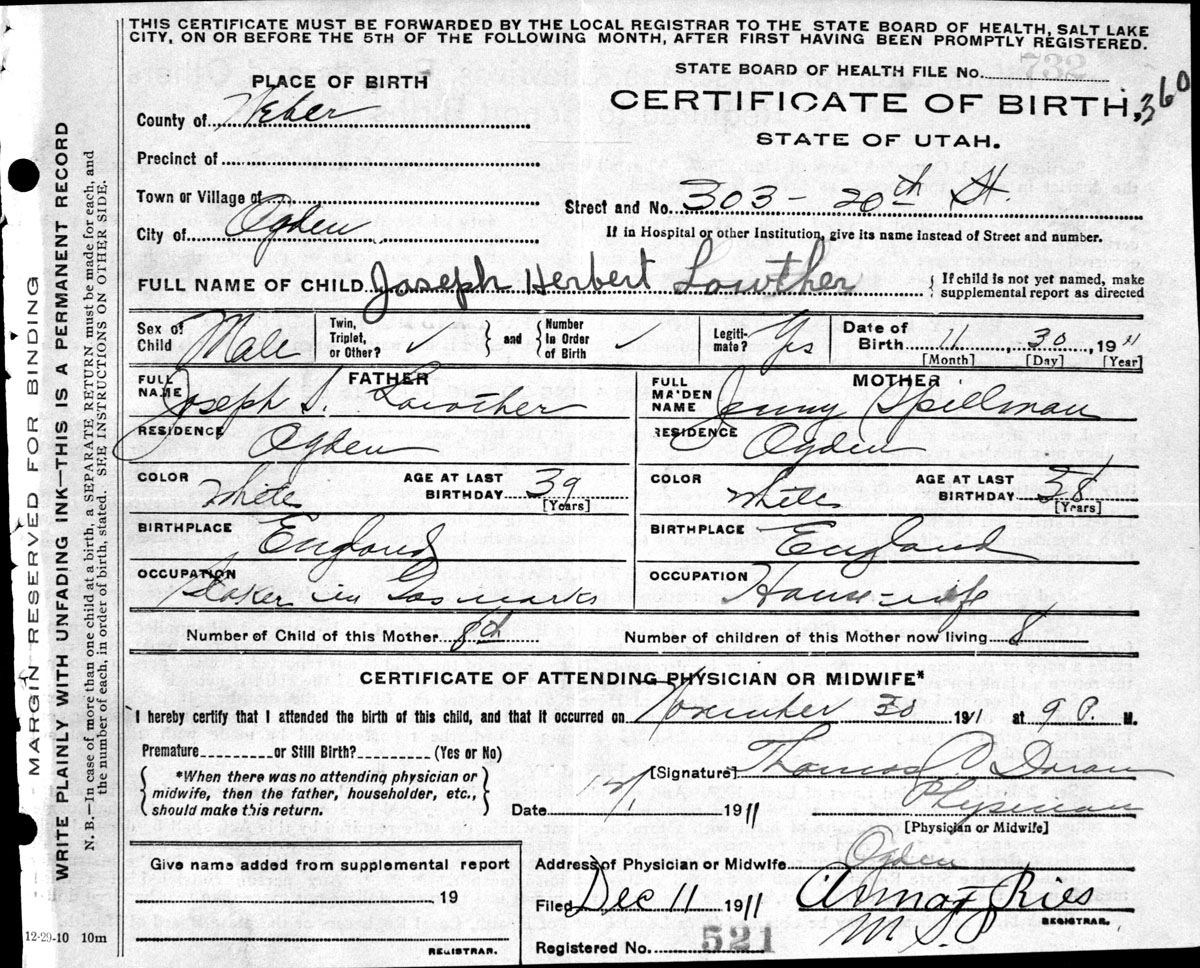 THIS CERTIFICATE MUST BE FORWARDED BY THE LOCAL REGISTRAR TO THE STATE BOARD OF HEALTH, SALT LAKE
CITY, ON OR BEFORE THE 5TH OF THE FOLLOWING MONTH, AFTER FIRST HAVING BEEN PROMPTLY REGISTERED.
STATE BOARD OF HEALTH FILE No. 732
PLACE OF BIRTH
CERTIFICATE OF BIRTH, 360
STATE OF UTAH.
County of Weber
Precinct of
Town or Village of
Street and No. 303 - 20th St.
City of Ogden
If in Hospital or other Institution, give its name instead of Street and number.
FULL NAME OF CHILD Joseph Herbert Lowther
{ If child is not yet named, make
supplemental report as directed
Sex of Child Male
Twin, Triplet, or Other? ✓
} and {
Number In Order of Birth ✓
Legitimate? Yes
Date of Birth 11, 30, 1911
[Month] [Day] [Year]
FATHER
FULL NAME Joseph S. Lowther
RESIDENCE Ogden
COLOR White
AGE AT LAST BIRTHDAY 39
[Years]
BIRTHPLACE England
OCCUPATION in Gas
MOTHER
FULL MAIDEN NAME Jenny Spillman
RESIDENCE Ogden
COLOR White
AGE AT LAST BIRTHDAY 38
[Years]
BIRTHPLACE England
OCCUPATION House-wife
Number of Child of this Mother 8th
Number of children of this Mother now living 8
CERTIFICATE OF ATTENDING PHYSICIAN OR MIDWIFE*
I hereby certify that I attended the birth of this child, and that it occurred on November 30 1911 at 9 P. M.
Premature or Still Birth? (Yes or No)
[Signature] Thomas C. Doran
{ *When there was no attending physician or
midwife, then the father, householder, etc.,
should make this return. }
Date 12/1 1911
Physician
[Physician or Midwife]
Give name added from supplemental report
19
REGISTRAR.
Address of Physician or Midwife Ogden
Filed Dec 11 1911
Ries
REGISTRAR.
Registered No. 521
12-29-10 10m
MARGIN RESERVED FOR BINDING
WRITE PLAINLY WITH UNFADING INK—THIS IS A PERMANENT RECORD
N. B.—In case of more than one child at a birth, a SEPARATE RETURN must be made for each, and
the number of each, in order of birth, stated. SEE INSTRUCTIONS ON OTHER SIDE.